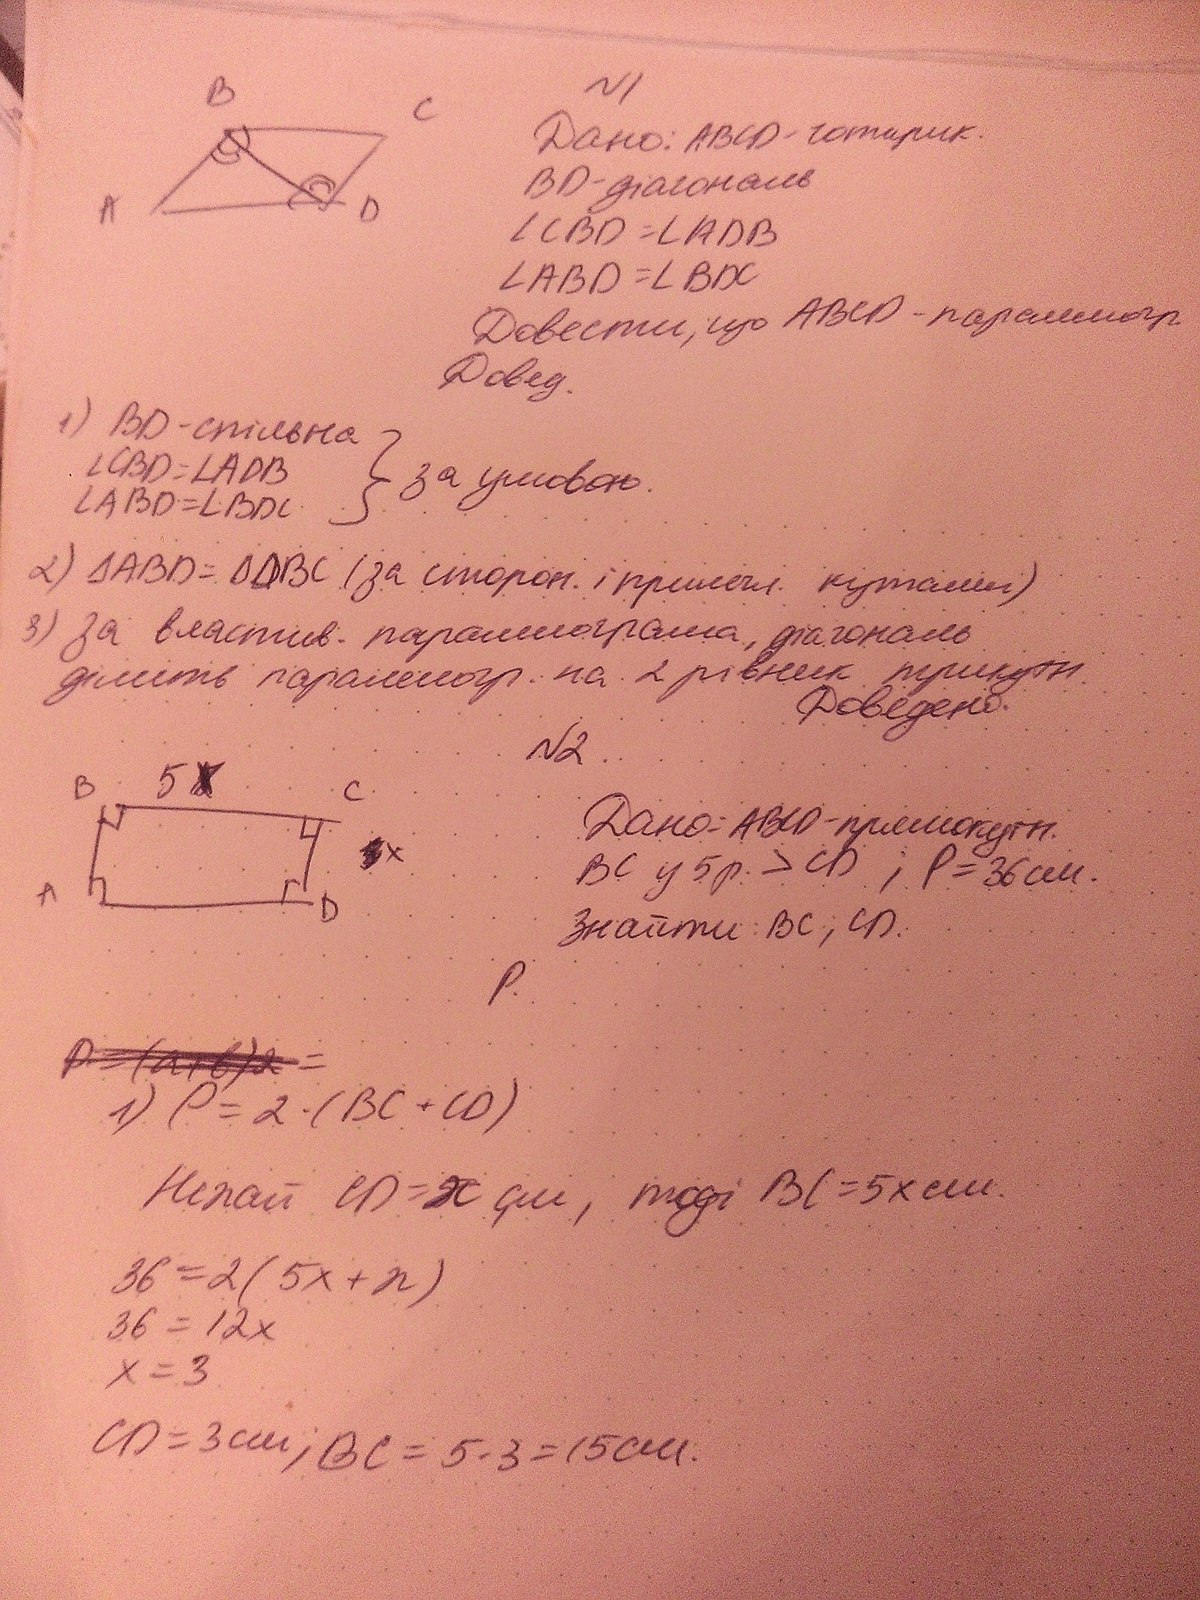 N1
B
C
A
D
Дано: ABCD - чотирик.
BD - діагональ
∠CBD = ∠ADB
∠ABD = ∠BDC
Довести, що ABCD - паралелогр.
Довед.
1) BD - спільна
∠CBD = ∠ADB
∠ABD = ∠BDC
} за умовою.
2) ΔABD = ΔDBC (за сторон. і прилегл. кутами)
3) За властив. паралелограма, діагональ
ділить паралелогр. на 2 рівних трикутн.
Доведено.
N2
B
5x
C
x
A
D
Дано: ABCD - прямокутн.
BC у 5 р. > CD ; P = 36 см.
Знайти: BC, CD.
Р.
P = (a+b)2 =
1) P = 2 · (BC + CD)
Нехай CD = x см, тоді BC = 5x см.
36 = 2(5x + x)
36 = 12x
x = 3
CD = 3 см; BC = 5·3 = 15 см.